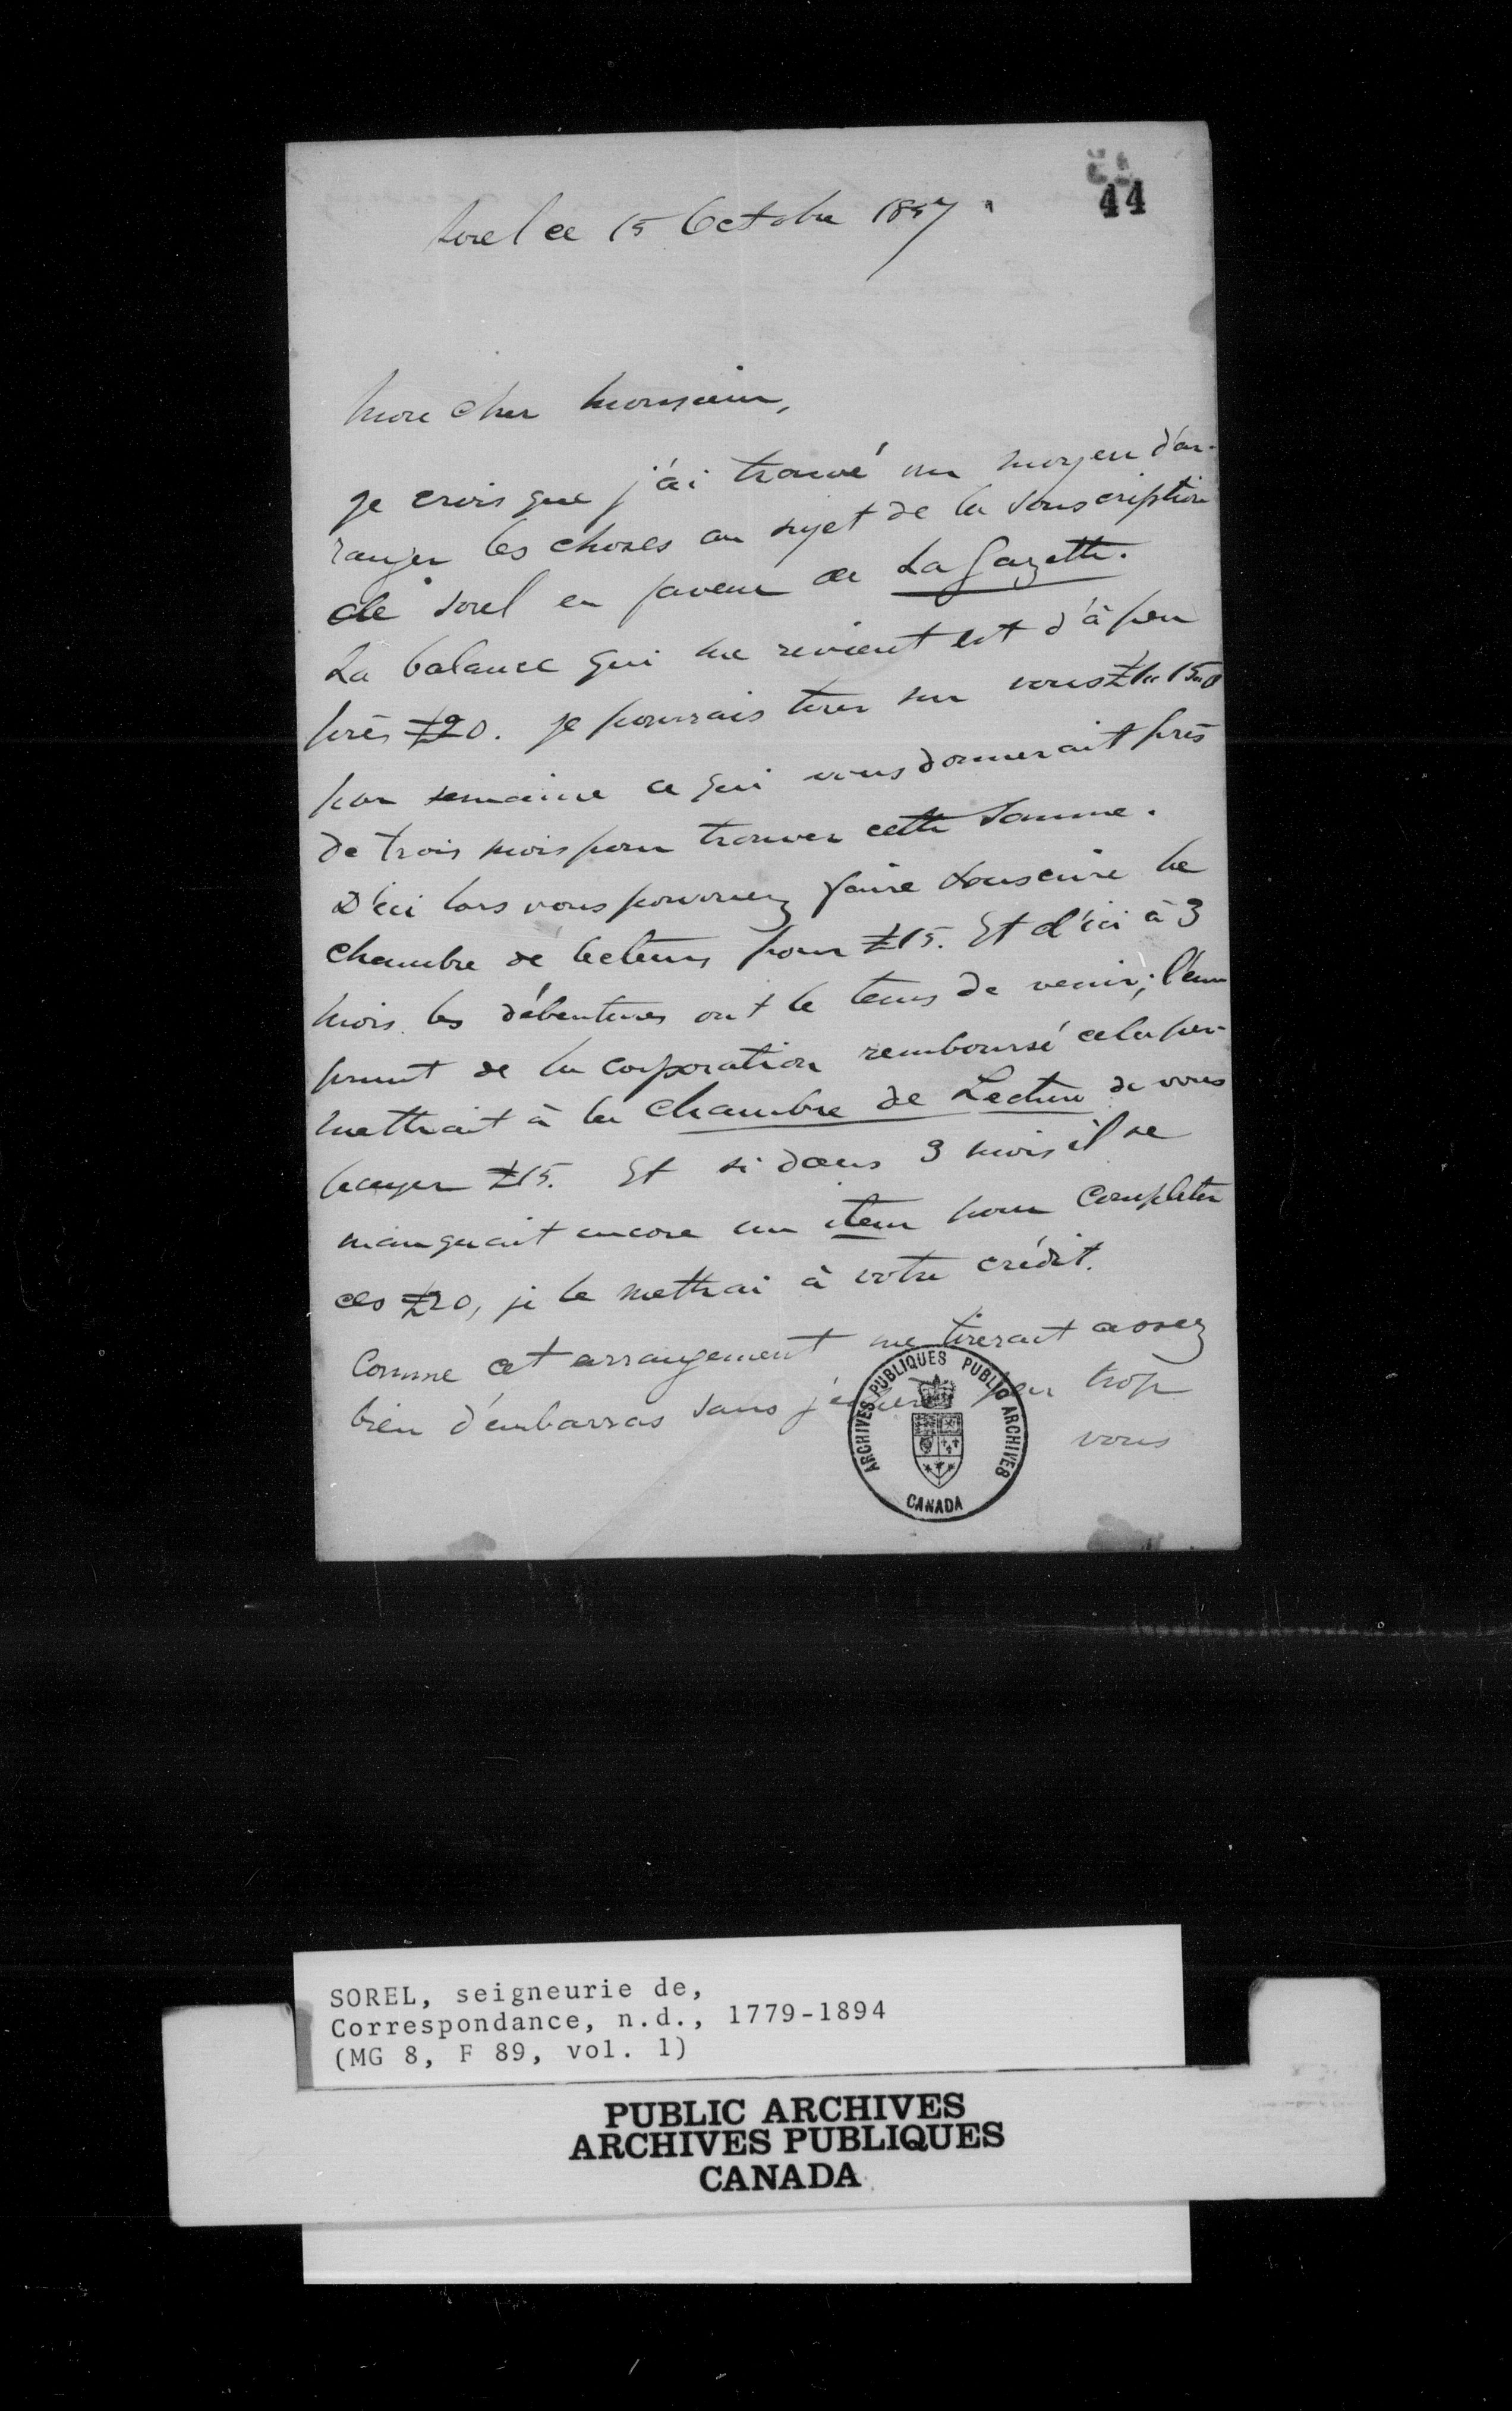 44
Sorel ce 15 Octobre 1857
Mon cher Monsieur,
Je crois que j'ai trouvé un moyen d'ar-
ranger les choses au sujet de la souscription
de Sorel en faveur de La Gazette.
La balance qui me revient est d'à peu
près £20. Je pourrais tirer sur vous
par semaine ce qui vous donnerait près
de trois mois pour trouver cette somme.
D'ici lors vous pourriez faire souscrire la
chambre de lecture pour £15. Et d'ici à 3
mois les débentures ont le tems de venir; l'em
prunt de la corporation remboursé cela per-
mettrait à la Chambre de Lecture de vous
payer £15. Et si dans 3 mois il se
manquait encore un item pour completer
ces £20, je le mettrai à votre crédit.
Comme cet arrangement me tirerait assez
bien d'embarras sans trop
vous
ARCHIVES PUBLIQUES PUBLIC ARCHIVES
CANADA
SOREL, seigneurie de,
Correspondance, n.d., 1779-1894
(MG 8, F 89, vol. 1)
PUBLIC ARCHIVES
ARCHIVES PUBLIQUES
CANADA